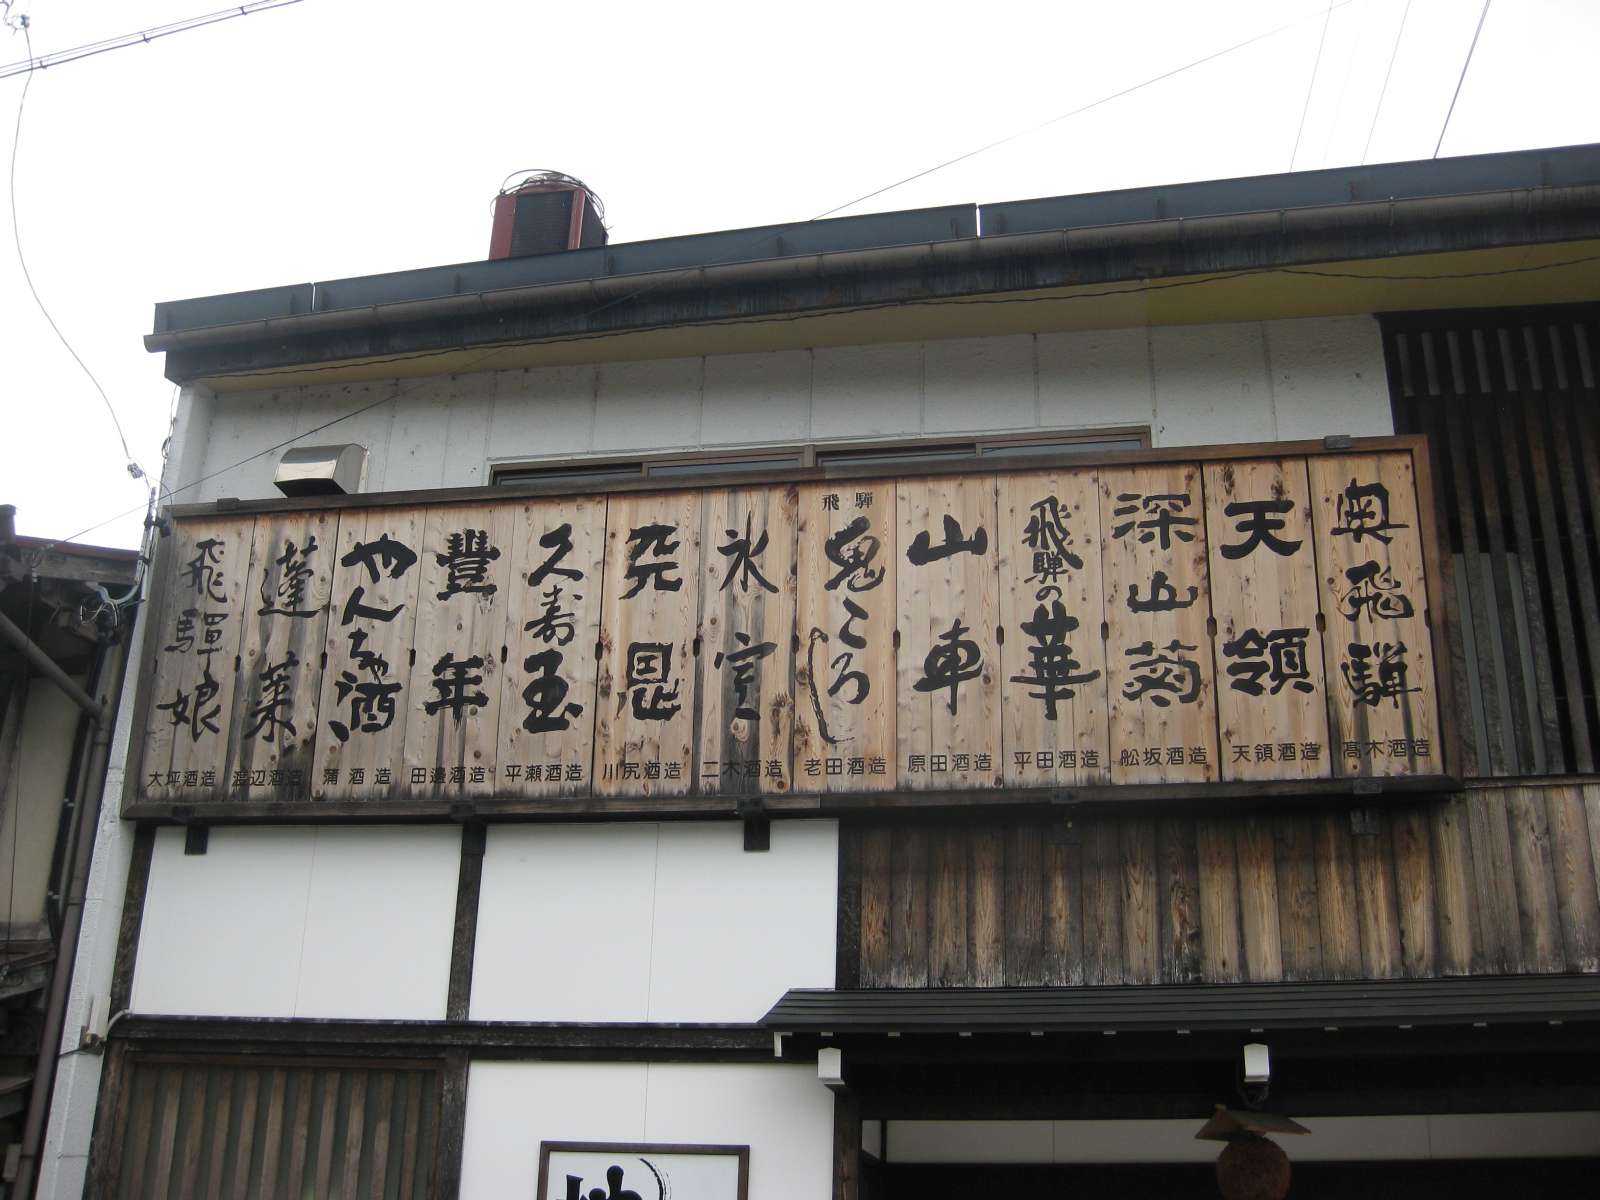 奥飛騨
髙木酒造
天領
天領酒造
深山菊
舩坂酒造
飛騨の華
平田酒造
山車
原田酒造
飛騨
鬼ころし
老田酒造
氷室
二木酒造
恩
川尻酒造
久寿玉
平瀬酒造
豐年
田邊酒造
やんちゃ酒
蒲酒造
蓬莱
渡辺酒造
飛驒娘
大坪酒造